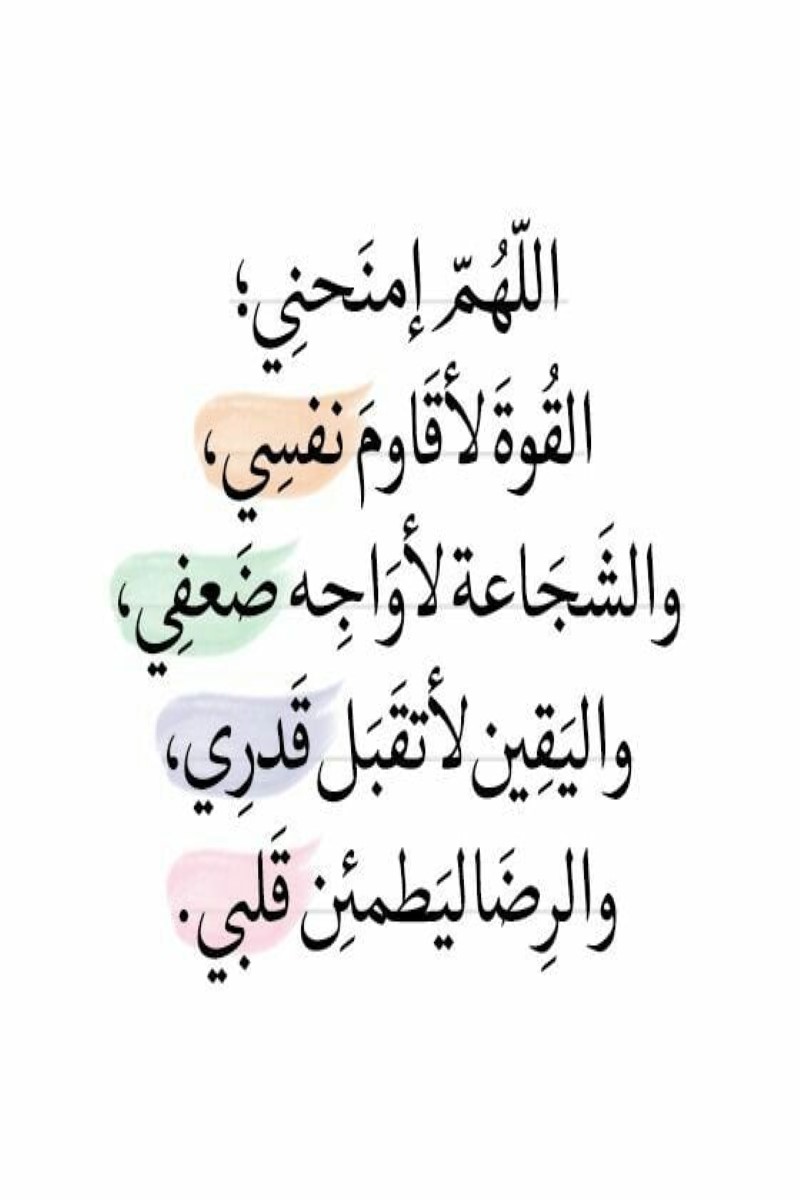 اللّهُمّ إمنَحنِي؛
القُوةَ لأقَاومَ نفسِي،
والشَجَاعة لأوَاجِه ضَعفِي،
واليَقِين لأتقَبَل قَدرِي،
والرِضَا ليَطمئِن قَلبي.